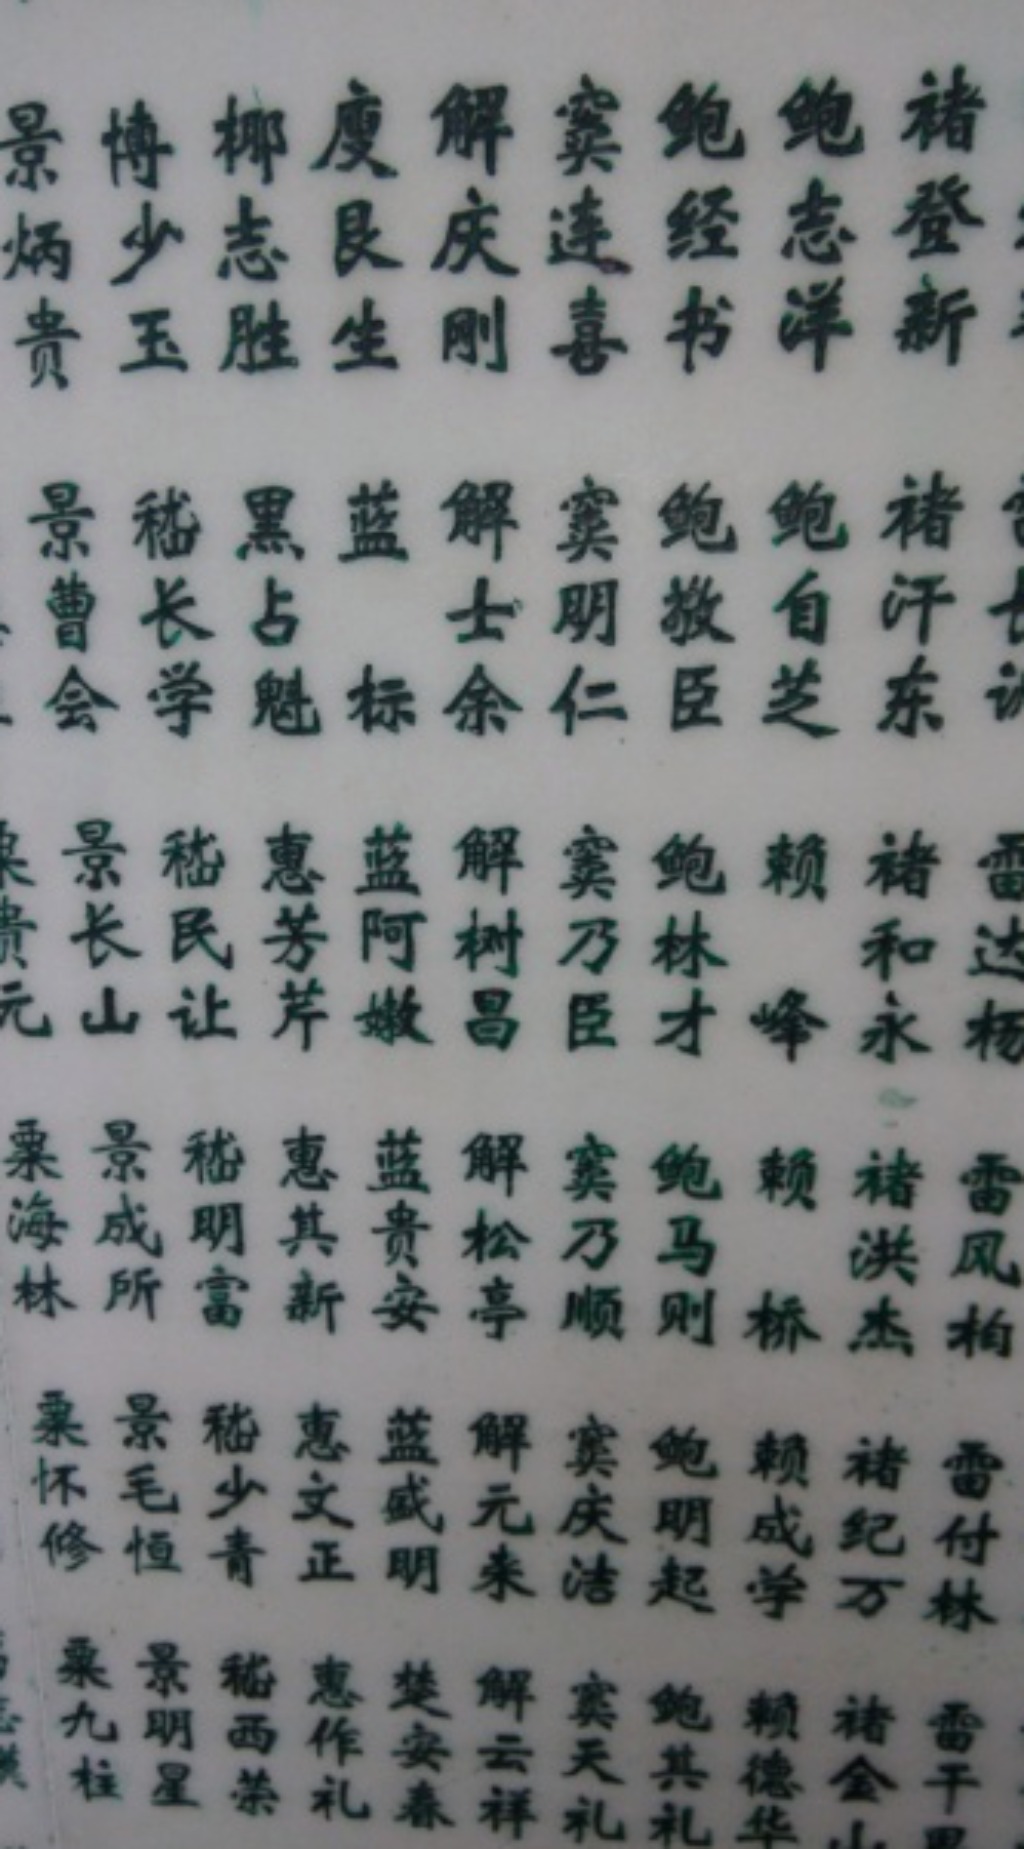 景炳贵
博少玉
椰志胜
廋艮生
解庆刚
窦连喜
鲍经书
鲍志洋
褚登新
景曹会
嵇长学
黑占魁
蓝标
解士余
窦明仁
鲍敬臣
鲍自芝
褚汗东
景长山
嵇民让
惠芳芹
蓝阿嫩
解树昌
窦乃臣
鲍林才
赖峰
褚和永
雷达杨
粟海林
景成所
嵇明富
惠其新
蓝贵安
解松亭
窦乃顺
鲍马则
赖桥
褚洪杰
雷风柏
粟怀修
景毛恒
嵇少青
惠文正
蓝盛明
解元来
窦庆洁
鲍明起
赖成学
褚纪万
雷付林
粟九柱
景明星
嵇西荣
惠作礼
楚安春
解云祥
窦天礼
鲍其礼
赖德华
褚金山
雷干